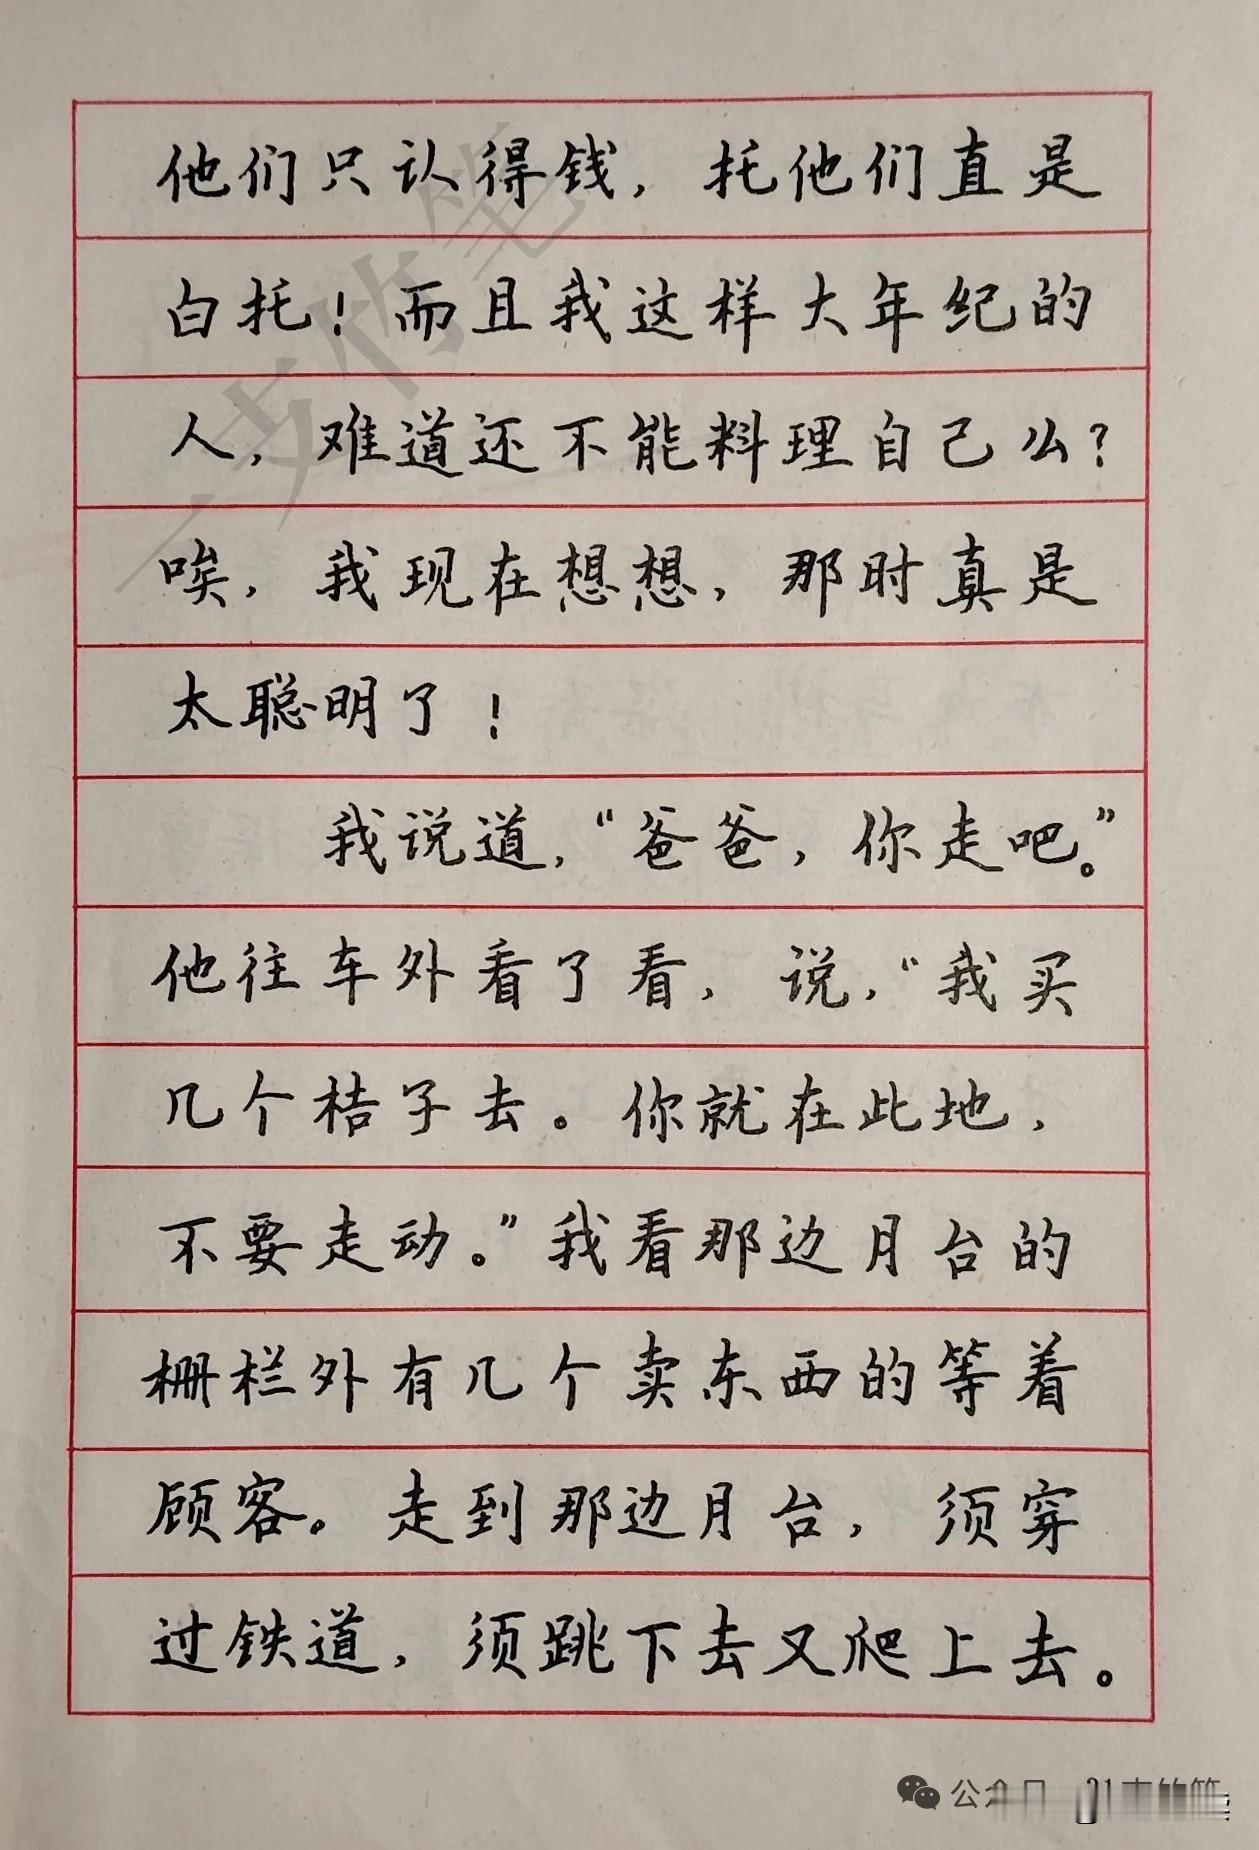 他们只认得钱，托他们直是
白托！而且我这样大年纪的
人，难道还不能料理自己么？
唉，我现在想想，那时真是
太聪明了！
我说道，“爸爸，你走吧。”
他往车外看了看，说，“我买
几个桔子去。你就在此地，
不要走动。”我看那边月台的
栅栏外有几个卖东西的等着
顾客。走到那边月台，须穿
过铁道，须跳下去又爬上去。
一支竹笔
公众号